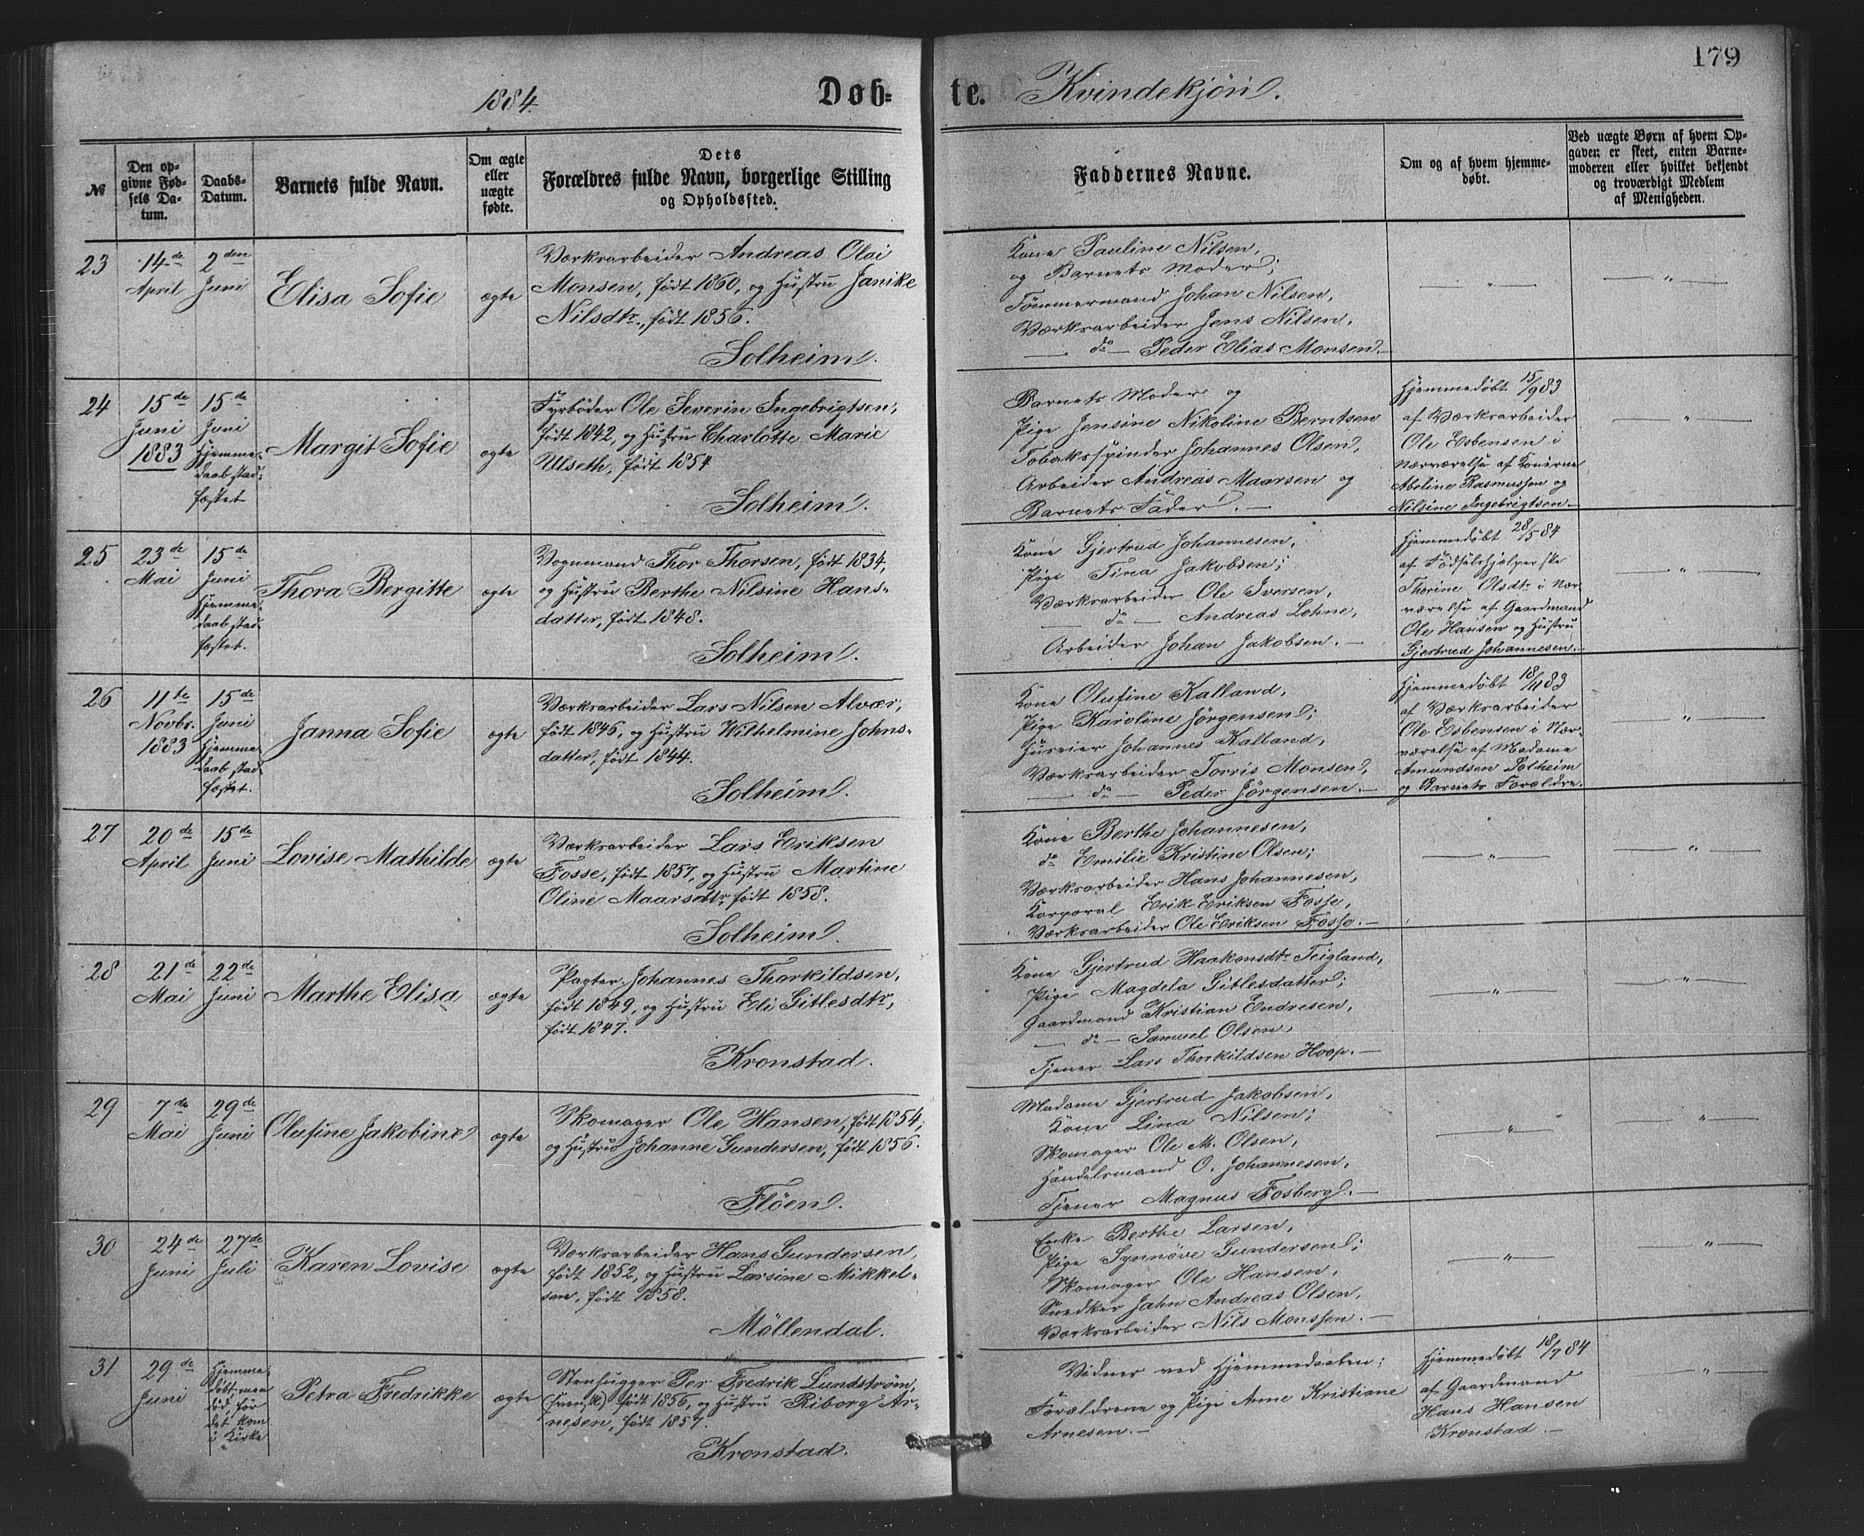 179
1884.
Døb-
te.
Kvindekjøn.
№
Den op-
givne Fød-
sels Da-
tum.
Daabs-
Datum.
Barnets fulde Navn.
Om ægte
eller
uægte
fødte.
Dets
Forældres fulde Navn, borgerlige Stilling
og Opholdssted.
Faddernes Navne.
Om og af hvem hjemme-
døbt.
Ved uægte Børn af hvem Op-
gaven er skeet, enten Barne-
moderen eller hvilket bekjendt
og troværdigt Medlem
af Menigheden.
23
14de
April
2den
Juni
Elisa Sofie
ægte
Værksarbeider Andreas Olai
Monsen, født 1860, og Hustru Janike
Nilsdtr., født 1856.
Solheim.
Kone Pauline Nilsen,
og Barnets Moder;
Tømmermand Johan Nilsen,
Værksarbeider Jens Nilsen,
— do — Peder Elias Monsen.—
— " —
— " —
24
15de
Juni
1883
15de
Juni
Hjemme-
daab stad-
fæstet
Margit Sofie
ægte
Fyrbøder Ole Severin Ingebrigtsen,
født 1842, og Hustru Charlotte Marie
Ulseth, født 1854
Solheim.
Barnets Moder og
Pige Jensine Nikoline Berntsen
Tobaksspinder Johannes Olsen,
Arbeider Andreas Maarsen og
Barnets Fader. —
Hjemmedøbt 15/9 83
af Værksarbeider
Ole Esbensen i
Nærværelse af Konerne
Abeline Rasmussen og
Nilsine Ingebrigtsen.—
— " —
25
23de
Mai
15de
Juni
Hjemme-
daab stad-
fæstet.
Thora Bergitte
ægte
Vognmand Thor Thorsen, født 1834,
og Hustru Berthe Nilsine Hans-
datter, født 1848.
Solheim.
Kone Gjertrud Johannesen,
Pige Tina Jakobsen;
Værksarbeider Ole Iversen,
— do — Andreas Lohne,
Arbeider Johan Jakobsen. —
Hjemmedøbt 28/5 84
af Fødselshjælperske
Thorine Olsdtr i Nær-
værelse af Gaardmand
Ole Hansen og Hustru
Gjertrud Johannesen.—
— " —
26
11te
Novbr.
1883
15de
Juni
Hjemme-
daab stad-
fæstet.
Janna Sofie
ægte
Værksarbeider Lars Nilsen Alvær,
født 1846, og Hustru Wilhelmine Johns-
datter, født 1844.
Solheim.
Kone Olufine Kalland,
Pige Karoline Jørgensen;
Huseier Johannes Kalland,
Værksarbeider Torris Monsen,
— do — Peder Jørgensen.—
Hjemmedøbt 18/11 83
af Værksarbeider
Ole Esbensen i Nær-
værelse af Madame
Amundsen Solheim
og Barnets Forældre.
— " —
27
20de
April
15de
Juni
Lovise Mathilde
ægte
Værksarbeider Lars Eriksen
Fosse, født 1857, og Hustru Martine
Oline Maarsdtr, født 1858.
Solheim.
Kone Berthe Johannesen,
do Emilie Kristine Olsen;
Værksarbeider Hans Johannesen,
Korporal Erik Eriksen Fosse,
Værksarbeider Ole Eriksen Fosse. —
— " —
— " —
28
21de
Mai
22de
Juni
Marthe Elisa
ægte
Pagter Johannes Thorkildsen,
født 1849, og Hustru Eli Gitlesdtr,
født 1847.
Kronstad.
Kone Gjertrud Haakonsdtr Teigland,
Pige Magdela Gitlesdatter;
Gaardmand Kristian Endresen,
— do — Samuel Olsen,
Tjener Lars Thorkildsen Hoop. —
— " —
— " —
29
7de
Mai
29de
Juni
Olufine Jakobine
ægte
Skomager Ole Hansen, født 1854,
og Hustru Johanne Gundersen, født 1856.
Fløen.
Madame Gjertrud Jakobsen,
Kone Lina Nilsen;
Skomager Ole M. Olsen,
Handelsmand O. Johannesen,
Tjener Magnus Fosberg. —
— " —
— " —
30
24de
Juni
27de
Juli
Karen Lovise
ægte
Værksarbeider Hans Gundersen,
født 1852, og Hustru Larsine Mikkel-
sen, født 1858.
Møllendal.
Enke Berthe Larsen,
Pige Synnøve Gundersen;
Skomager Ole Hansen,
Snedker Jahn Andreas Olsen,
Værksarbeider Nils Monssen. —
— " —
— " —
31
29de
Juni
Hjemme-
døbt, men
død, før
det kom
i Kirke
Petra Fredrikke
ægte
Stenhugger Per Fredrik Lundstrøm,
(svensk) født 1856, og Hustru Riborg Ar-
nesen, født 1857.
Kronstad.
Vidner ved Hjemmedaaben:
Forældrene og Pige Anne Kristiane
Arnesen. —
Hjemmedøbt 18/7 84
af Gaardmand
Hans Hansen
Kronstad. —
— " —